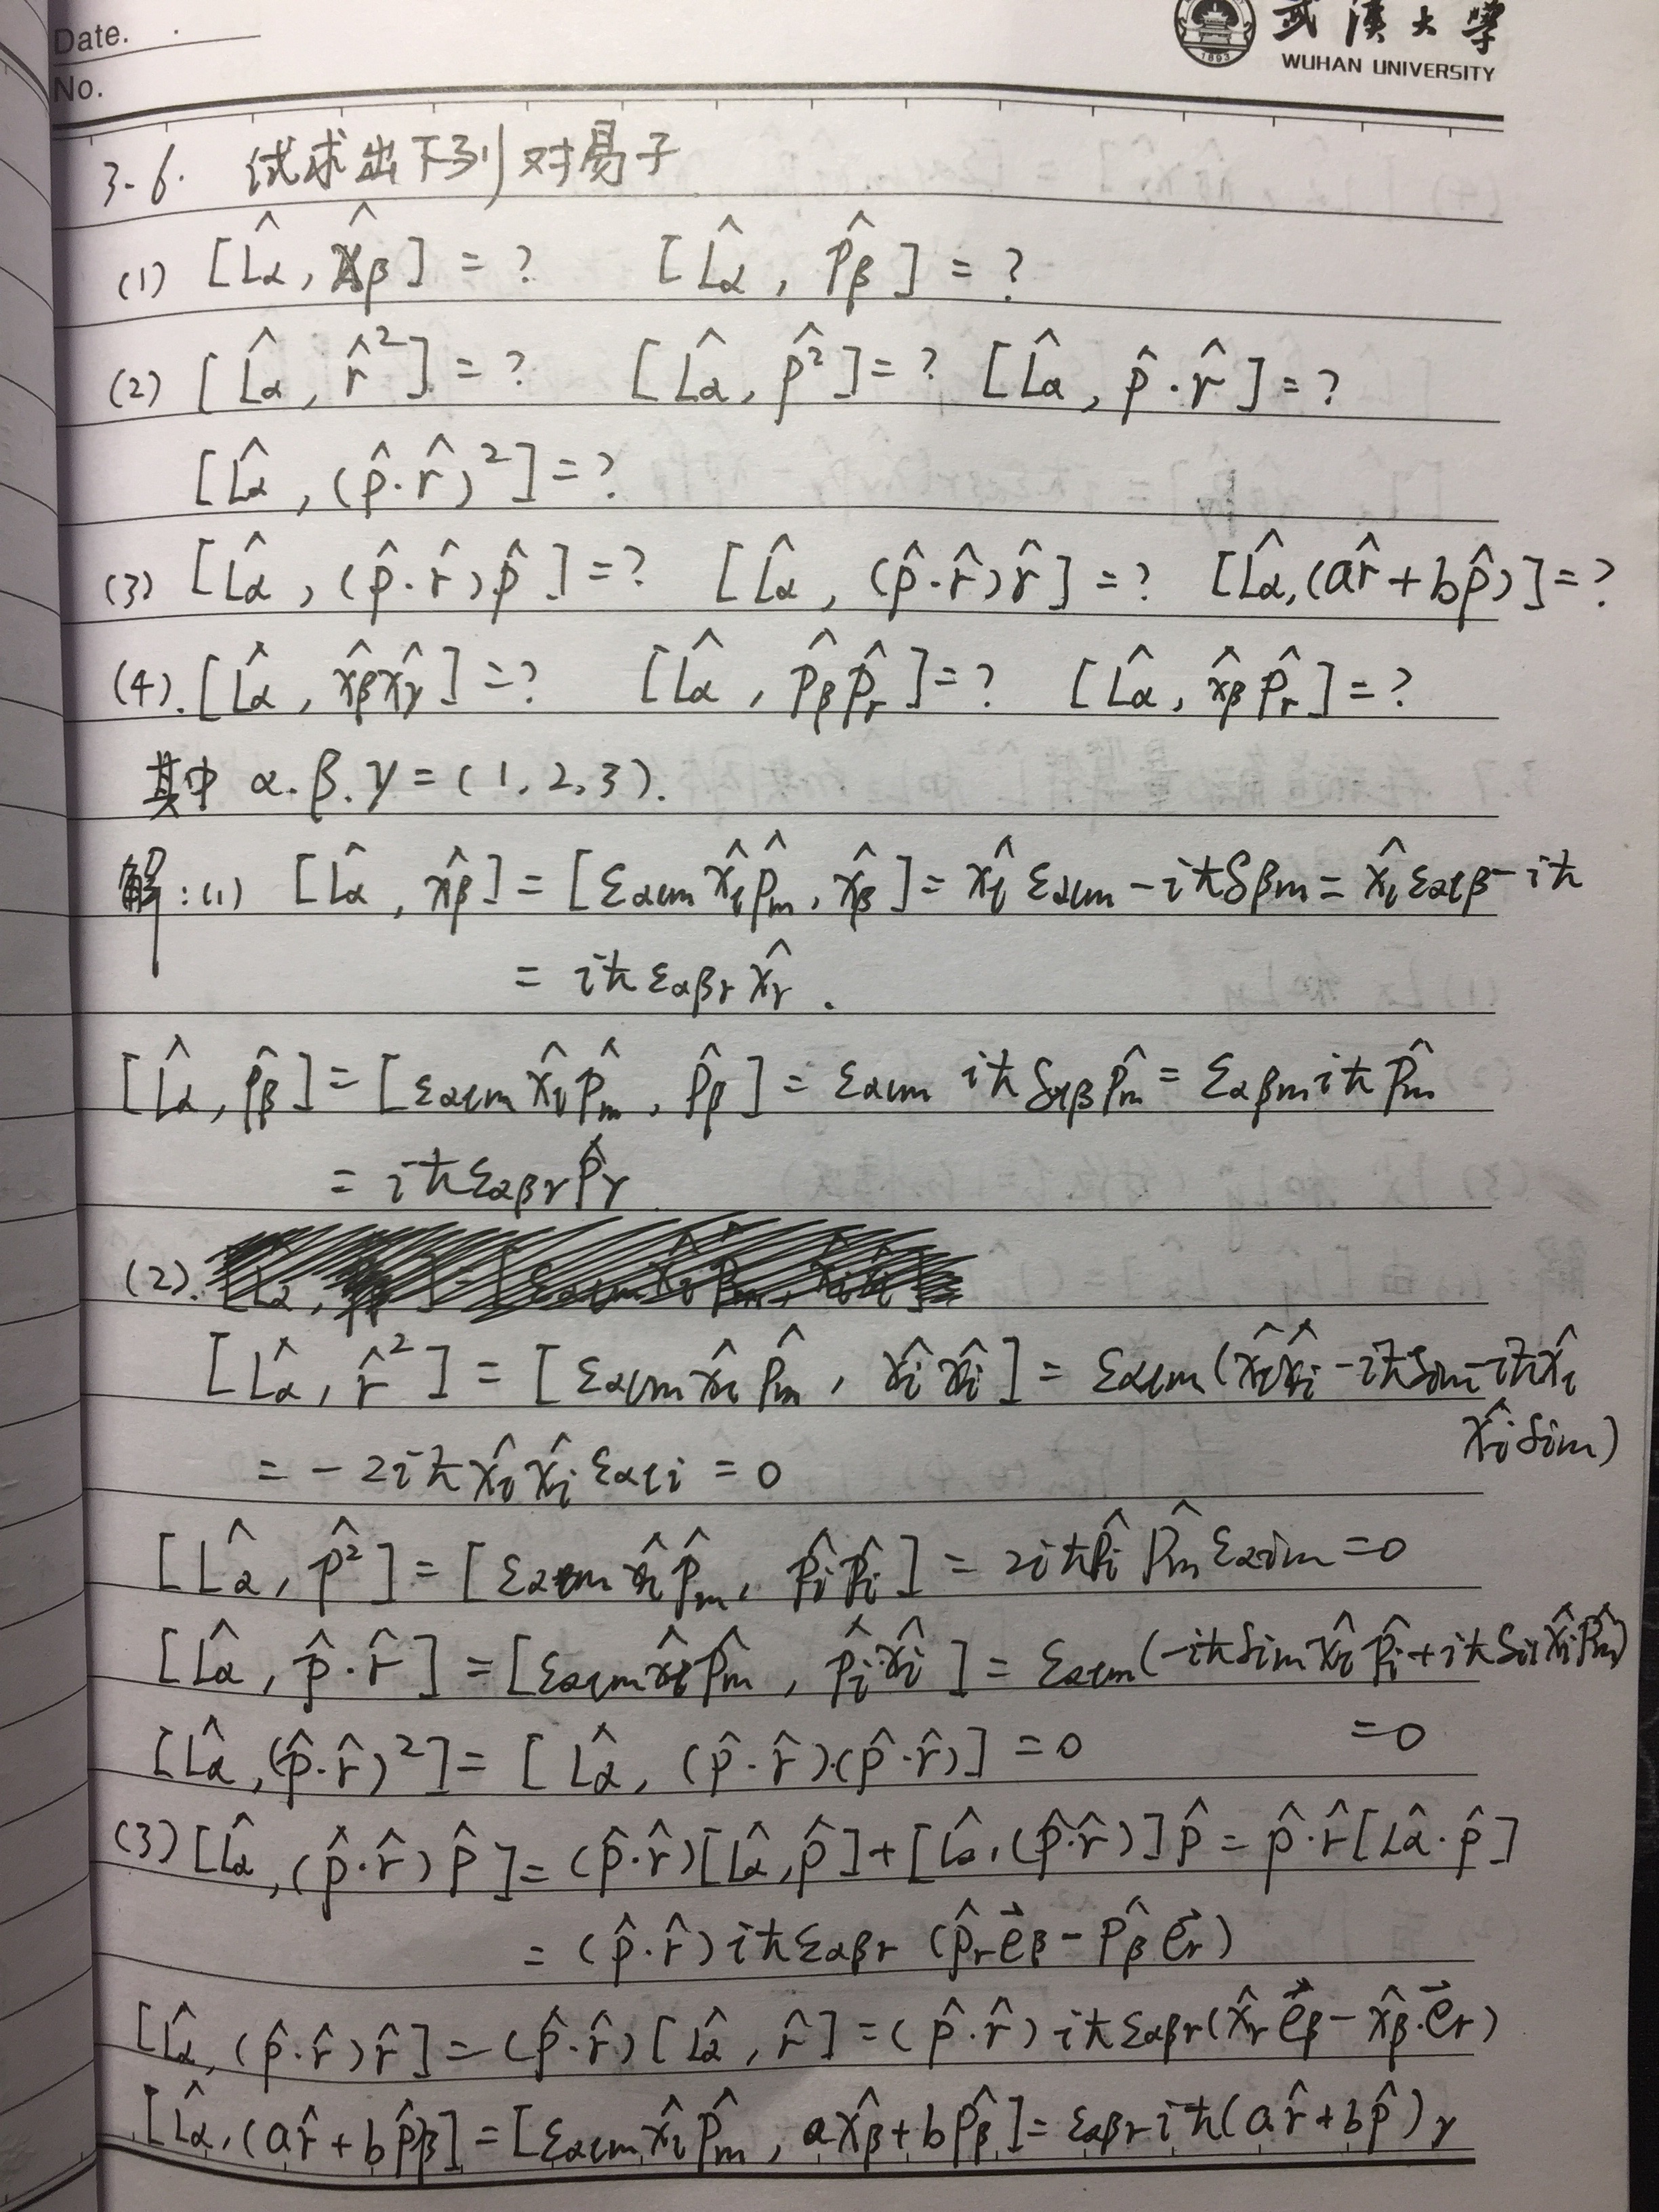 Date.
No.
武漢大學
WUHAN UNIVERSITY
1893
3-6. 试求出下列对易子
(1) [L̂α, x̂β] = ? [L̂α, p̂β] = ?
(2) [L̂α, r̂²] = ? [L̂α, p̂²] = ? [L̂α, p̂·r̂] = ?
[L̂α, (p̂·r̂)²] = ?
(3) [L̂α, (p̂·r̂)p̂] = ? [L̂α, (p̂·r̂)r̂] = ? [L̂α, (ar̂+bp̂)] = ?
(4). [L̂α, x̂βx̂γ] = ? [L̂α, p̂βp̂r] = ? [L̂α, x̂βp̂r] = ?
其中 α.β.γ = (1, 2, 3).
解: (1) [L̂α, x̂β] = [εαlm x̂l p̂m, x̂β] = x̂l εαlm -iħδβm = x̂l εαlβ -iħ
= iħ εαβr x̂r.
[L̂α, p̂β] = [εαlm x̂l p̂m, p̂β] = εαlm iħ δlβ p̂m = εαβm iħ p̂m
= iħ εαβγ p̂γ
(2).
[L̂α, r̂²] = [εαlm x̂l p̂m, x̂i x̂i] = εαlm (x̂l x̂i -iħδim -iħx̂l
x̂i δim)
= -2iħ x̂l x̂i εαli = 0
[L̂α, p̂²] = [εαlm x̂l p̂m, p̂i p̂i] = 2iħ p̂i p̂m εαim = 0
[L̂α, p̂·r̂] = [εαlm x̂l p̂m, p̂i x̂i] = εαlm (-iħδim x̂l p̂i + iħ δil x̂i p̂m)
= 0
[L̂α, (p̂·r̂)²] = [L̂α, (p̂·r̂)(p̂·r̂)] = 0
(3) [L̂α, (p̂·r̂)p̂] = (p̂·r̂)[L̂α, p̂] + [L̂α, (p̂·r̂)]p̂ = p̂·r̂[L̂α·p̂]
= (p̂·r̂) iħ εαβr (p̂r e⃗β - p̂β e⃗r)
[L̂α, (p̂·r̂)r̂] = (p̂·r̂)[L̂α, r̂] = (p̂·r̂) iħ εαβr (x̂r e⃗β - x̂β·e⃗r)
[L̂α, (ar̂+bp̂)β] = [εαlm x̂l p̂m, ax̂β+bp̂β] = εαβr iħ (ar̂+bp̂)γ